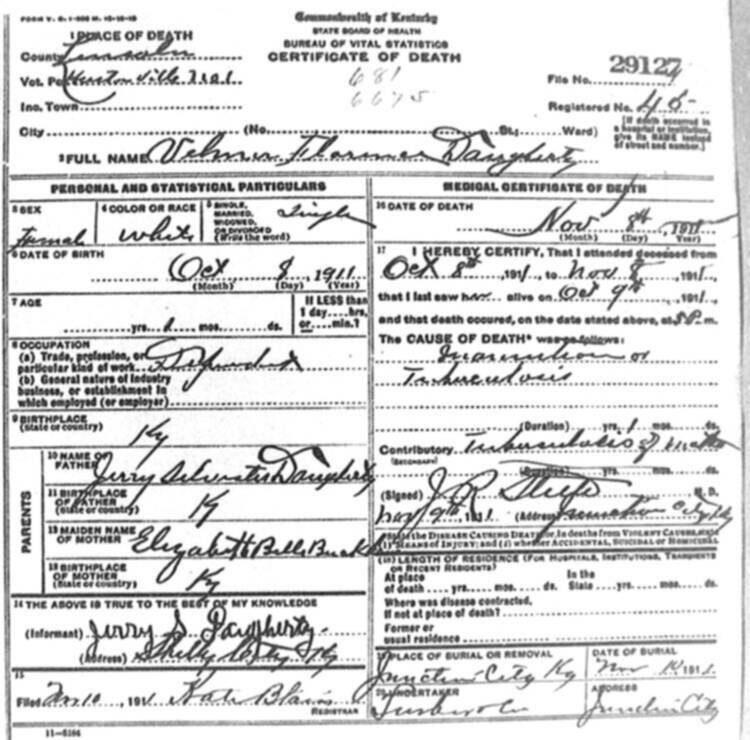 FORM V. S. 1
Commonwealth of Kentucky
STATE BOARD OF HEALTH
BUREAU OF VITAL STATISTICS
CERTIFICATE OF DEATH
1 PLACE OF DEATH
County Lincoln
Vot. Pct
Inc. Town
City (No. St.; Ward)
681
6645
File No. 29127
Registered No. 45
[If death occurred in a hospital or institution, give its NAME instead of street and number.]
2 FULL NAME Daugherty
PERSONAL AND STATISTICAL PARTICULARS
3 SEX Female
4 COLOR OR RACE White
5 SINGLE, MARRIED, WIDOWED, OR DIVORCED (Write the word) Single
6 DATE OF BIRTH
Oct 8 1911
(Month) (Day) (Year)
7 AGE
yrs. 1 mos. ds.
If LESS than 1 day....hrs. or....min.?
8 OCCUPATION
(a) Trade, profession, or particular kind of work
(b) General nature of industry business, or establishment in which employed (or employer)
9 BIRTHPLACE
(State or country) Ky
PARENTS
10 NAME OF FATHER Jerry Silvester Daugherty
11 BIRTHPLACE OF FATHER (State or country) Ky
12 MAIDEN NAME OF MOTHER Elizabeth Belle
13 BIRTHPLACE OF MOTHER (State or country) Ky
14 THE ABOVE IS TRUE TO THE BEST OF MY KNOWLEDGE
(Informant) Jerry S Daugherty
(Address) Shelby City Ky
15
Filed Nov 10, 1911 Kate Blain
REGISTRAR
11-5184
MEDICAL CERTIFICATE OF DEATH
16 DATE OF DEATH
Nov 8th, 1911
(Month) (Day) (Year)
17 I HEREBY CERTIFY, That I attended deceased from
Oct 8th, 1911, to Nov 8, 1911,
that I last saw her alive on Oct 9th, 1911,
and that death occured, on the date stated above, at 5 P. m.
The CAUSE OF DEATH* was as follows:
Inanition or
Tuberculosis
(Duration) yrs. 1 mos. ds.
Contributory Tuberculosis of
(SECONDARY)
(Duration) yrs. mos. ds.
(Signed) J. R. M. D.
Nov 9th, 1911 (Address) Junction City Ky
*State the DISEASE CAUSING DEATH, or, in deaths from VIOLENT CAUSES, state (1) MEANS OF INJURY; and (2) whether ACCIDENTAL, SUICIDAL or HOMICIDAL
(18) LENGTH OF RESIDENCE (FOR HOSPITALS, INSTITUTIONS, TRANSIENTS OR RECENT RESIDENTS)
At place of death yrs. mos. ds. In the State yrs. mos. ds.
Where was disease contracted,
If not at place of death?
Former or usual residence
19 PLACE OF BURIAL OR REMOVAL
Junction City Ky
DATE OF BURIAL
Nov 10 1911
20 UNDERTAKER
ADDRESS
Junction City